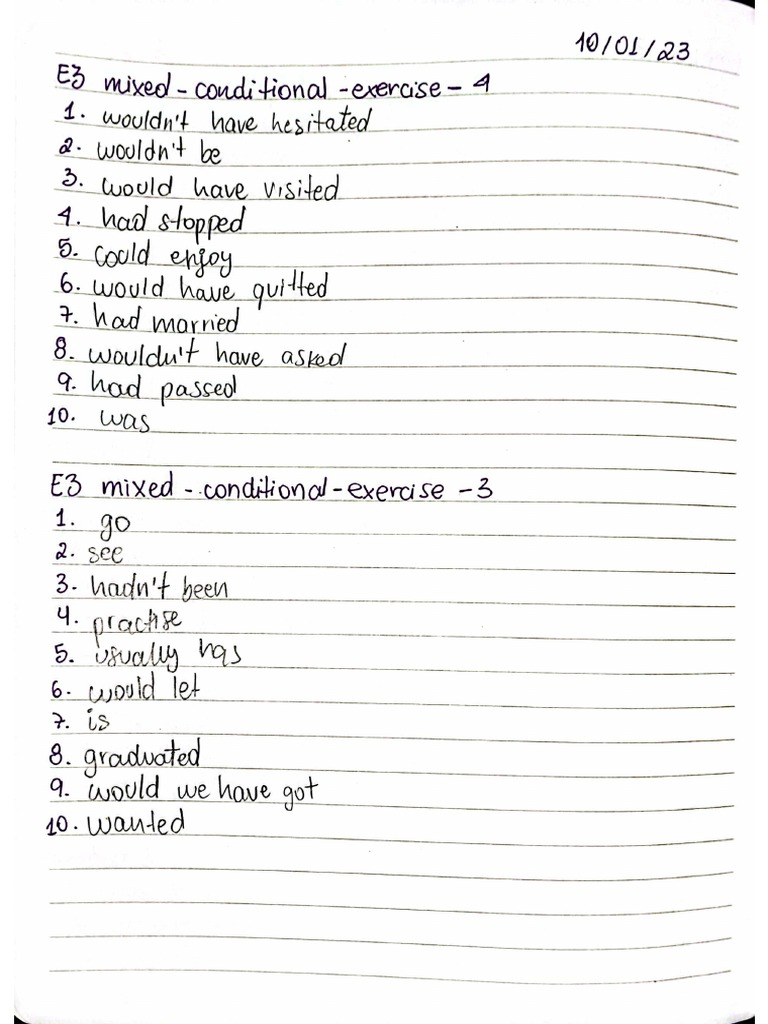 10/01/23
E3 mixed-conditional-exercise-4
1. wouldn't have hesitated
2. wouldn't be
3. would have visited
4. had stopped
5. could enjoy
6. would have quitted
7. had married
8. wouldn't have asked
9. had passed
10. was
E3 mixed-conditional-exercise-3
1. go
2. see
3. hadn't been
4. practise
5. usually has
6. would let
7. is
8. graduated
9. would we have got
10. wanted